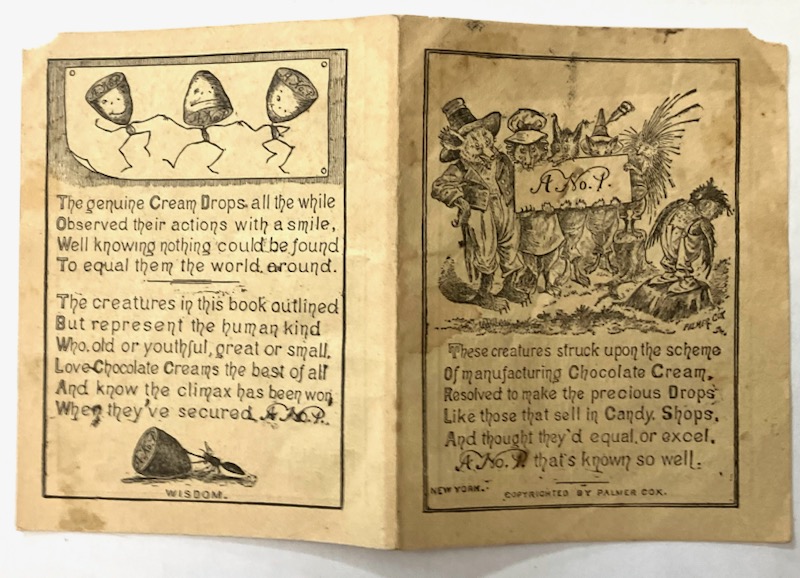 The genuine Cream Drops, all the while
Observed their actions with a smile,
Well knowing nothing could be found
To equal them the world around.
The creatures in this book outlined
But represent the human kind
Who, old or youthful, great or small,
Love Chocolate Creams the best of all
And know the climax has been won
When they've secured A. No. P.
WISDOM.
A No. P.
PALMER COX
These creatures struck upon the scheme
Of manufacturing Chocolate Cream,
Resolved to make the precious Drops
Like those that sell in Candy Shops,
And thought they'd equal, or excel,
A No. P. that's known so well.
NEW YORK.
COPYRIGHTED BY PALMER COX.